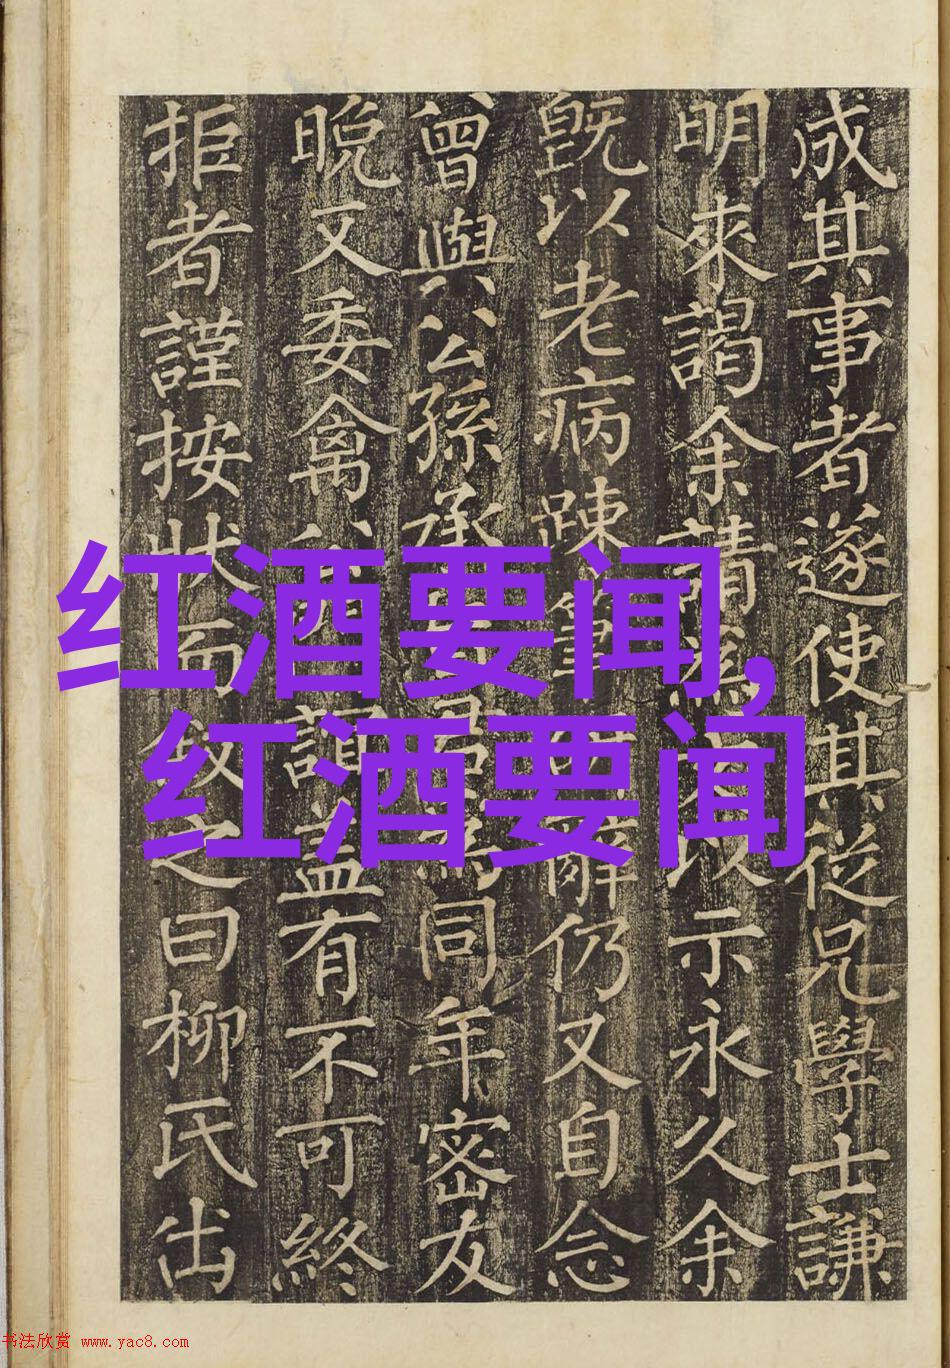 成其事者遂使其從兄學士謙
明來謁余請為以示永久余
既以老病踈筆辭仍又自念
曾與公孫承君為同年密友
晚又委禽誼盖有不可終
拒者謹按狀而敘之曰柳氏出
红酒要闻,
红酒要闻
书法欣赏 www.yac8.com